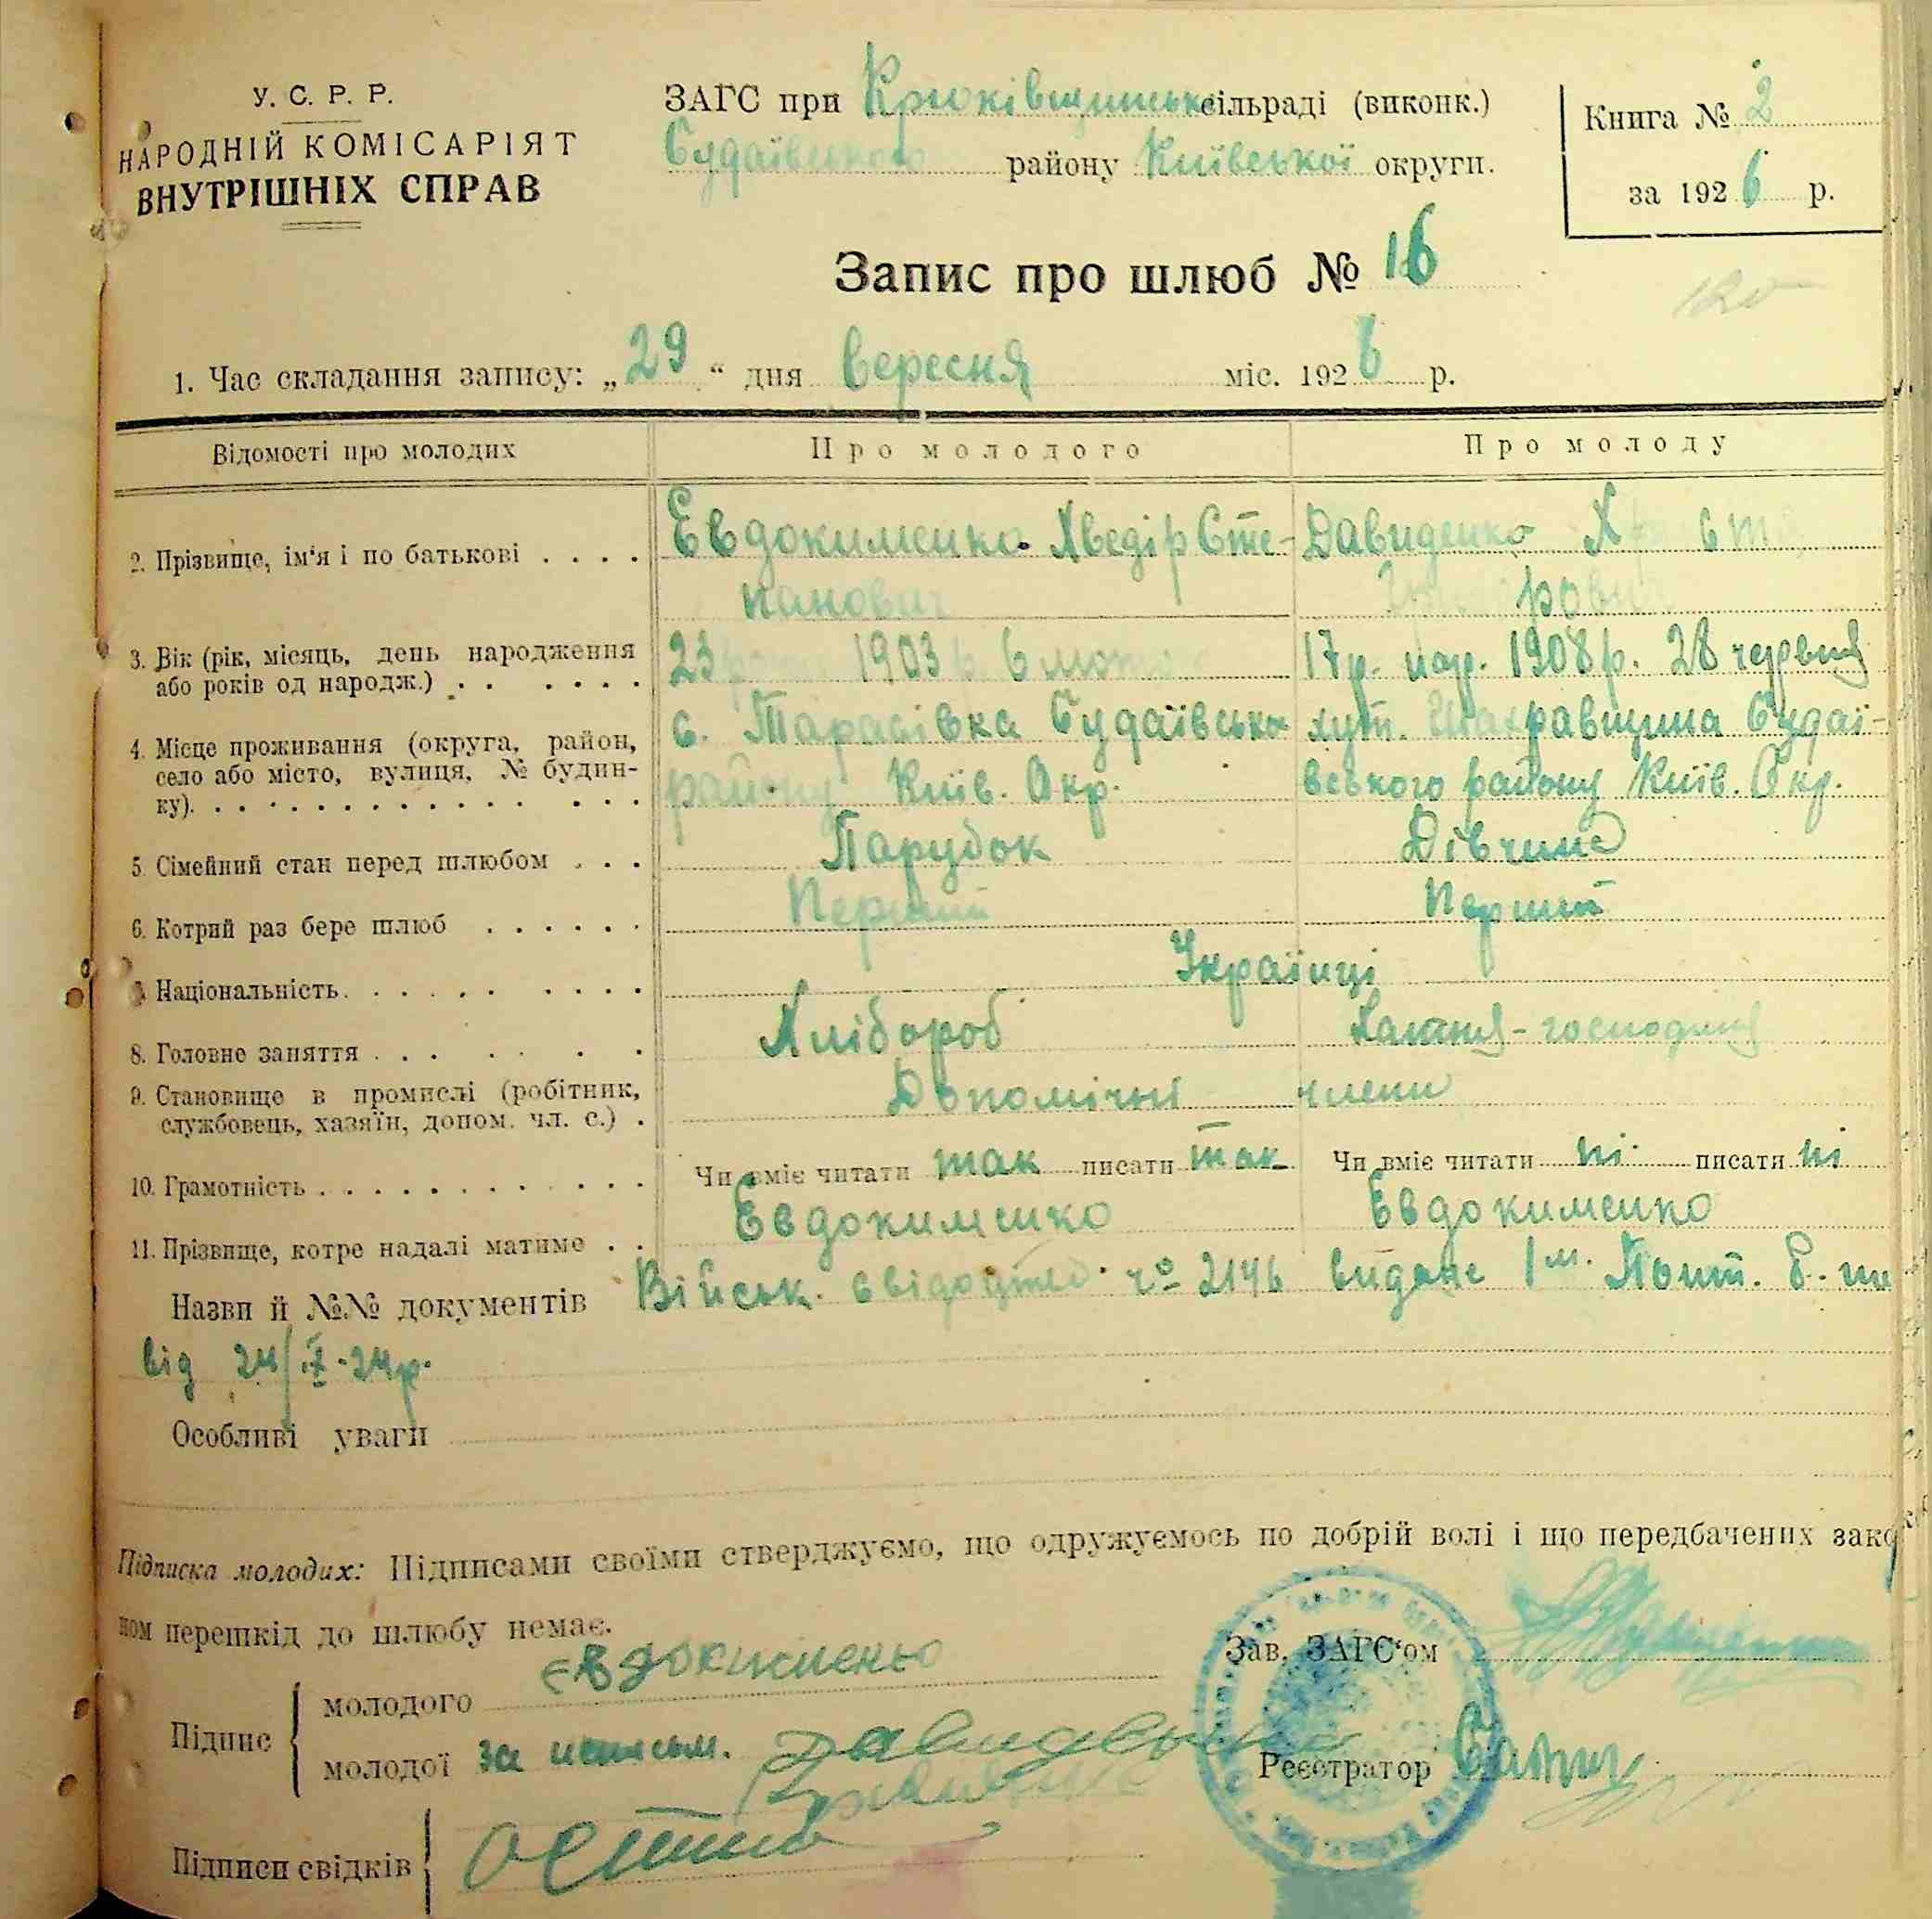 У. С. Р. Р.
НАРОДНІЙ КОМІСАРІЯТ
ВНУТРІШНІХ СПРАВ
ЗАГС при Крюківщинській сільраді (виконк.)
Будаївського району Київської округи.
Книга № 2
за 1926 р.
Запис про шлюб № 16
1. Час складання запису: „29“ дня вересня міс. 1926 р.
Відомості про молодих Про молодого Про молоду
2. Прізвище, ім'я і по батькові . . . . Евдокименко Хведір Сте- Давиденко
панович
3. Вік (рік, місяць, день народження 23 1903 р. 6 17 р. нар. 1908 р. 28 червня
або років од народж.) . . . . . .
4. Місце проживання (округа, район, с. Тарасівка Будаївськ. хут. Будаї-
село або місто, вулиця, № будин- району Київ. Окр. вського району Київ. Окр.
ку). . . . . . . . . . . . . . . .
5. Сімейний стан перед шлюбом . . . Парубок Дівчина
6. Котрий раз бере шлюб . . . . . . Перший Перший
7. Національність. . . . . . . . . . Українці
8. Головне заняття . . . . . . . Хлібороб Хатня-господиня
9. Становище в промислі (робітник, Допомічні члени
службовець, хазяїн, допом. чл. с.) .
10. Грамотність . . . . . . . . . . . . Чи вміє читати так писати так Чи вміє читати ні писати ні
11. Прізвище, котре надалі матиме . . Евдокименко Евдокименко
Назви й №№ документів Військ. свідоцтво ч° 2146 видане 1 м.
від 24/IX-24р.
Особливі уваги
Підписка молодих: Підписами своїми стверджуємо, що одружуємось по добрій волі і що передбачених зако
ном перешкід до шлюбу немає.
Зав. ЗАГС'ом
Підпис молодого Евдокименко
молодої за неписьм.
Реєстратор
Підписи свідків